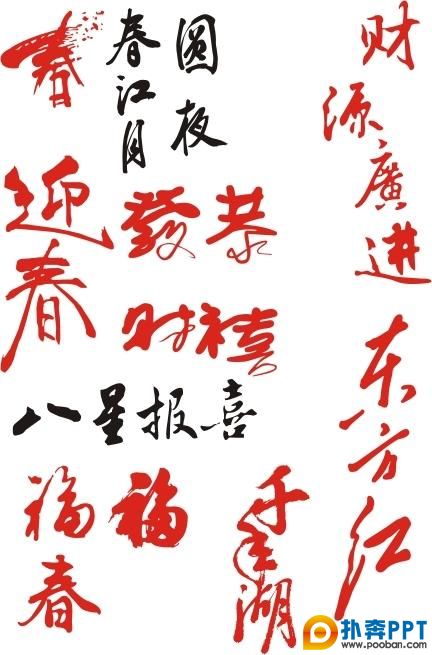 春
春江月
圆夜
财源廣进
迎春
恭禧
發财
八星报喜
东方红
福春
福
千 湖
扑奔PPT
www.pooban.com